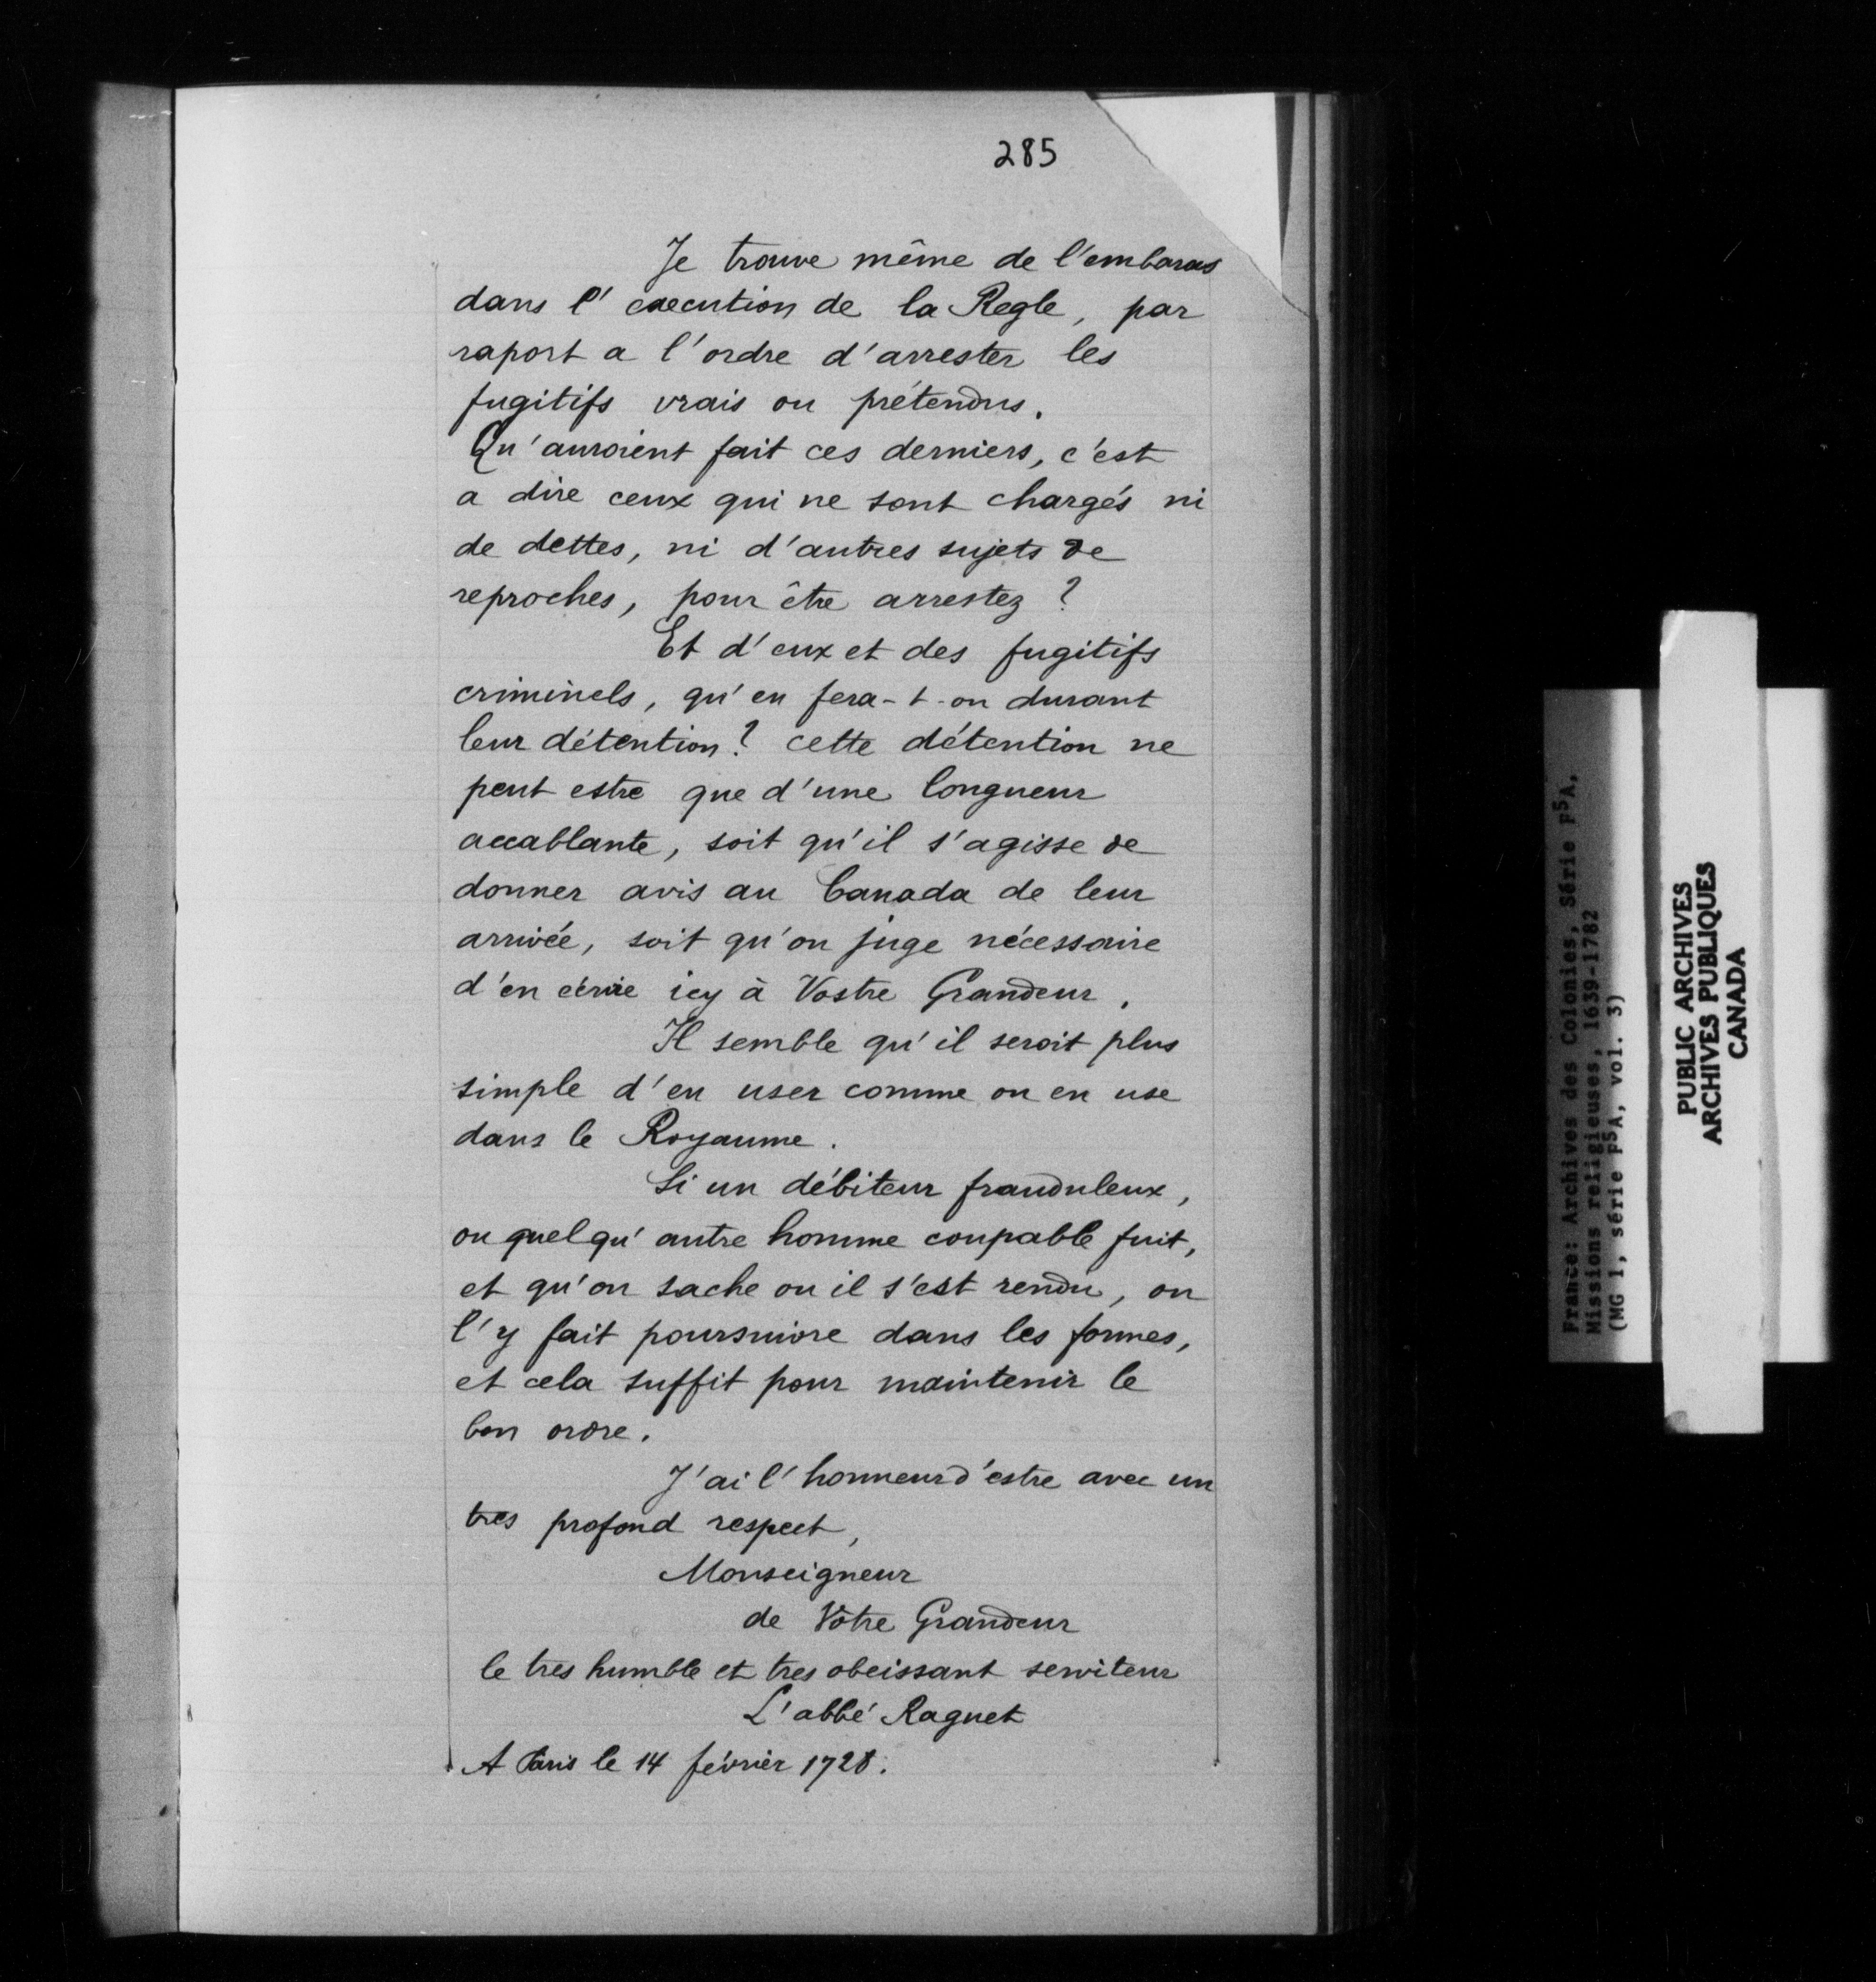 285
Je trouve même de l'embaras
dans l'execution de la Regle, par
raport a l'ordre d'arrester les
fugitifs vrais ou prétendus.
Qu'auroient fait ces derniers, c'est
a dire ceux qui ne sont chargés ni
de dettes, ni d'autres sujets de
reproches, pour être arrestez ?
Et d'eux et des fugitifs
criminels, qu'en fera-t-on durant
leur détention ? cette détention ne
peut estre que d'une longueur
accablante, soit qu'il s'agisse de
donner avis au Canada de leur
arrivée, soit qu'on juge nécessaire
d'en écrire icy à Vostre Grandeur.
Il semble qu'il seroit plus
simple d'en user comme on en use
dans le Royaume.
Si un débiteur frauduleux,
ou quelqu'autre homme coupable fuit,
et qu'on sache ou il s'est rendu, on
l'y fait poursuivre dans les formes,
et cela suffit pour maintenir le
bon ordre.
J'ai l'honneur d'estre avec un
tres profond respect,
Monseigneur
de Vôtre Grandeur
le tres humble et tres obeissant serviteur
L'abbé Raguet
A Paris le 14 février 1728.
France: Archives des Colonies, Série F⁵A,
Missions religieuses, 1639-1782
(MG 1, série F⁵A, vol. 3)
PUBLIC ARCHIVES
ARCHIVES PUBLIQUES
CANADA